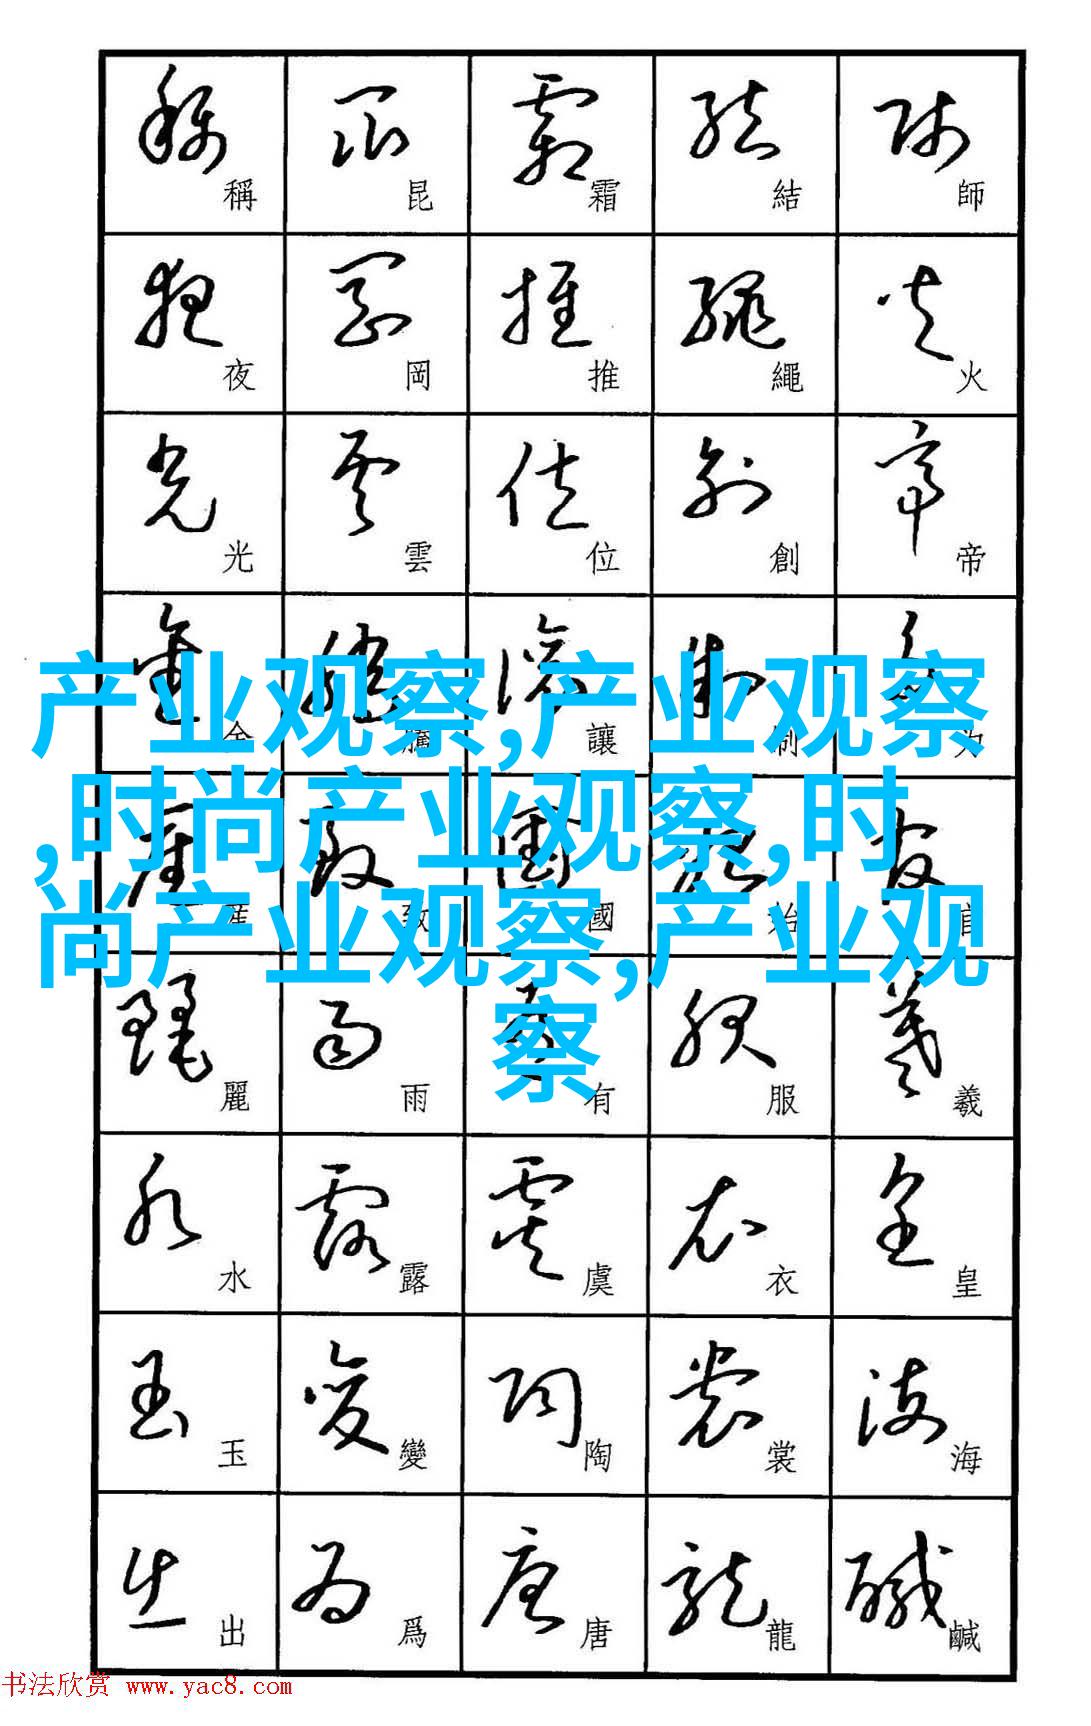 稱 昆 霜 結 師
夜 岡 推 繩 火
光 雲 位 創 帝
金 騰 讓 制
致 國 始 官
麗 雨 有 服 羲
水 露 虞 衣 皇
玉 變 陶 裳 海
出 爲 唐 龍 鹹
产业观察,产业观察
,时尚产业观察,时
尚产业观察,产业观
察
书法欣赏 www.yac8.com